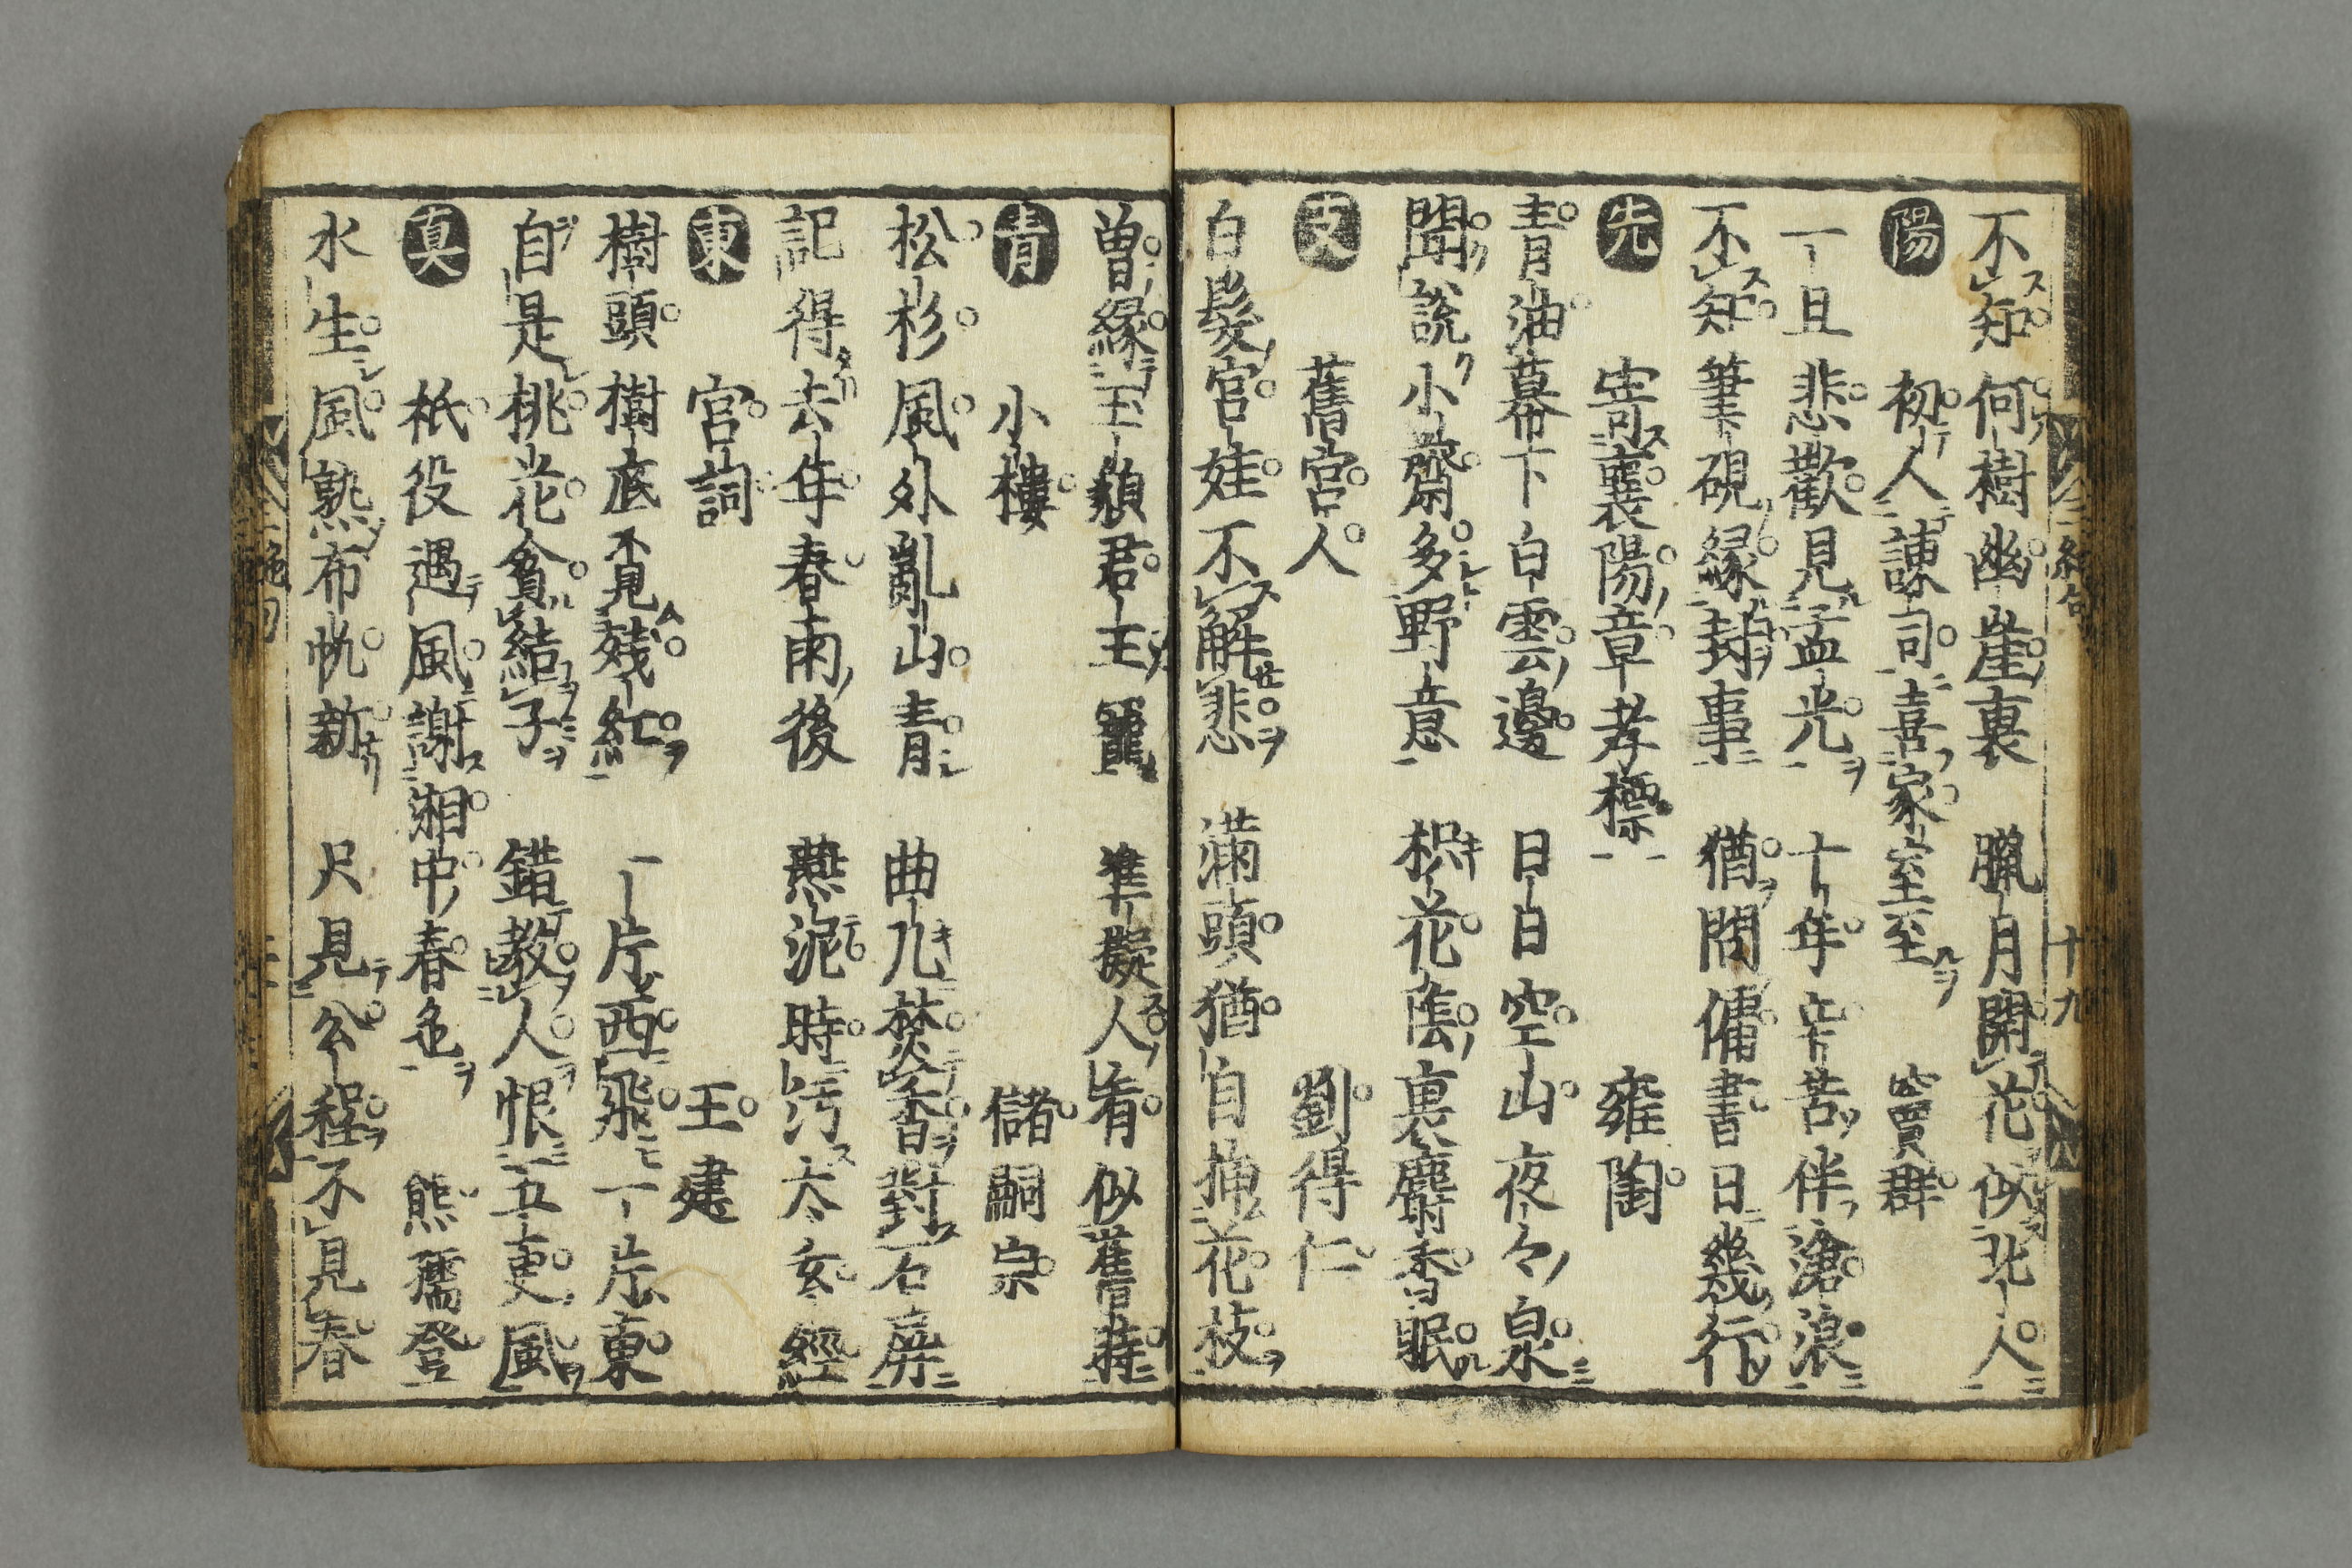 不知何樹幽崖裏 臘月開花似北人
陽 初人諫司喜家室至 竇群
一旦悲歡見孟光 十年辛苦伴滄浪
不知筆硯縁封事 猶問傭書日幾行
先 寄襄陽章孝標 雍陶
青油幕下白雲邊 日日空山夜々泉
聞說小齋多野意 枳花陰裏麝香眠
支 舊宮人 劉得仁
白髮宮娃不解悲 滿頭猶自插花枝
曽縁玉皃君王寵 準擬人看似舊時
青 小樓 儲嗣宗
松杉風外亂山青 曲几焚香對石屏
記得去年春雨後 燕泥時汚太玄經
東 宮詞 王建
樹頭樹底覓殘紅 一片西飛一片東
自是桃花貪結子 錯教人恨五更風
真 祇役遇風謝湘中春色 熊孺登
水生風熟布帆新 只見公程不見春
十九